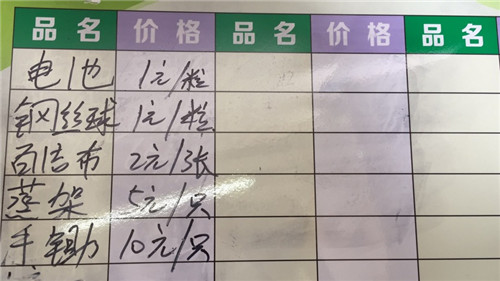 品名 价格 品名 价格 品名
电池 1元/粒
钢丝球 1元/粒
百洁布 2元/张
蒸架 5元/只
手锄 10元/只